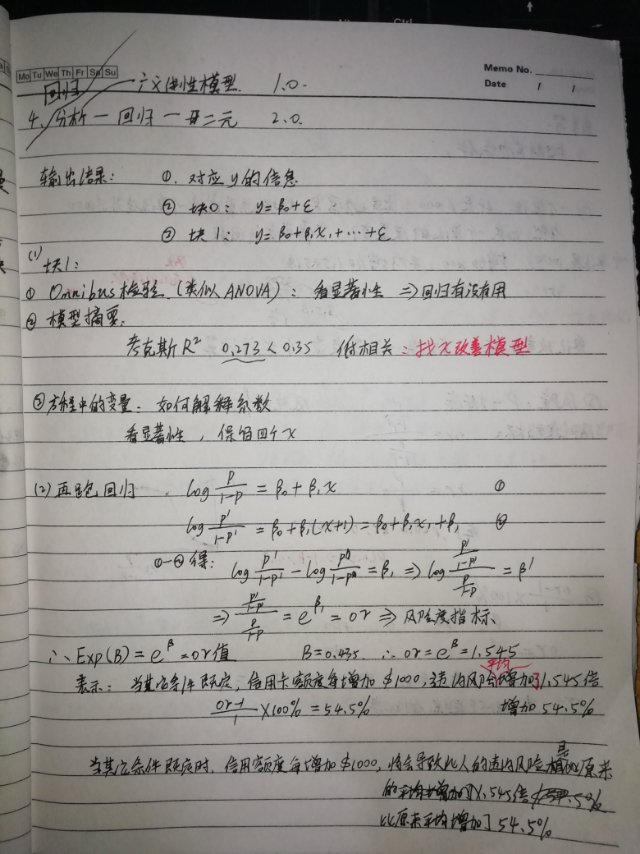 Mo Tu We Th Fr Sa Su
Memo No.
Date / /
回归 广义线性模型. 1.0.
4、分析一回归一毋二元 2.0.
输出结果: ①. 对应y的信息
② 块0: y=β₀+ε
③ 块1: y=β₀+β₁x₁+…+ε
(1) 块1:
① Omnibus检验 (类似ANOVA): 看显著性 ⇒回归有没有用
② 模型摘要:
考克斯R² 0.273<0.35 低相关: 找x改善模型
③方程中的变量: 如何解释系数
看显著性, 保留四个x
(2)再跑回归. log p/(1-p) = β₀+β₁x ①
log p'/(1-p') = β₀+β₁(x+1) = β₀+β₁x₁+β₁ ②
①-②得: log p'/(1-p') - log p/(1-p) = β₁ ⇒ log (p'/(1-p'))/(p/(1-p)) = β'
⇒ (p'/(1-p'))/(p/(1-p)) = e^β₁ = or ⇒ 风险度指标
∴ Exp(B) = e^β = or值 B=0.435 ∴ or=e^β=1.545
表示: 当其它条件既定, 信用卡额度每增加$1000, 违约风险平均增加了1.545倍
(or-1)/1 ×100% = 54.5% 增加54.5%
当其它条件既定时, 信用额度每增加$1000, 将会导致此人的违约风险是原来
的 1.545倍
比原来平均增加了54.5%